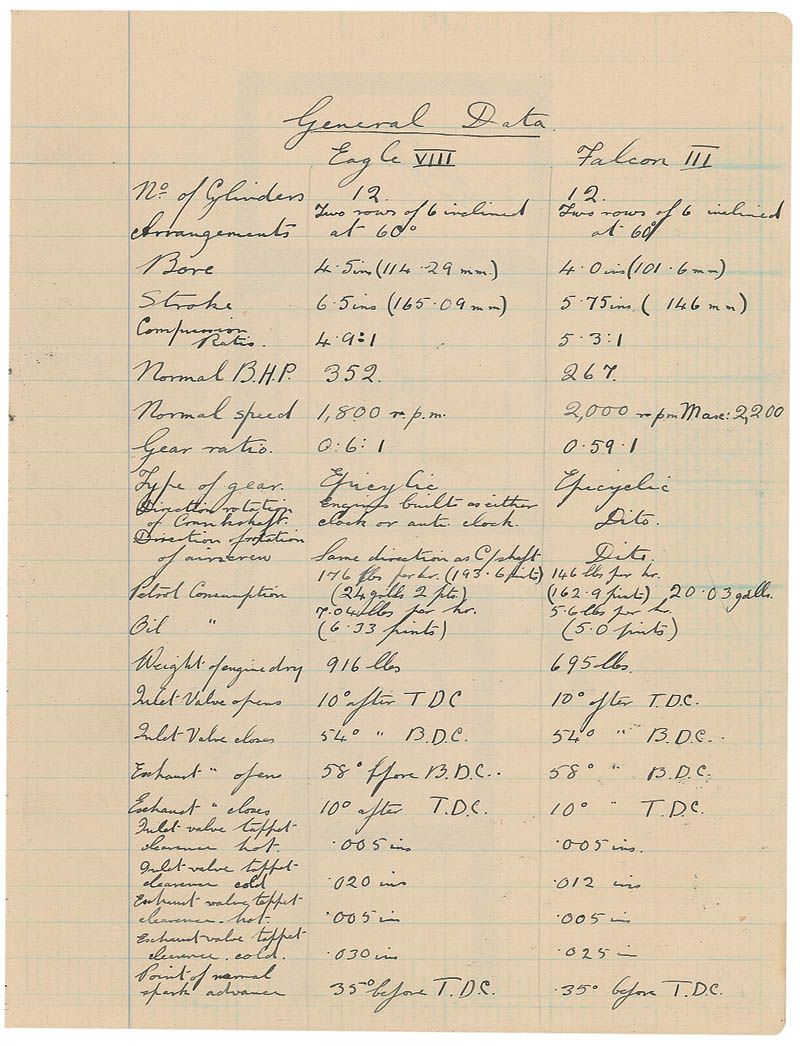 General Data.
Eagle VIII Falcon III
No of Cylinders 12. 12.
Arrangements Two rows of 6 inclined at 60° Two rows of 6 inclined at 60°
Bore 4.5ins (114.29 mm.) 4.0ins (101.6 mm)
Stroke 6.5ins (165.09 mm) 5.75ins. ( 146 mm)
Compression Ratio. 4.9:1 5.3:1
Normal B.H.P. 352. 267.
Normal speed 1,800 r.p.m. 2,000 rpm Max: 2,200
Gear ratio. 0:6:1 0.59.1
Type of gear. Epicylic Epicyclic
Direction rotation of Crankshaft. Engines builts as either clock or anti. clock. Dito.
Direction of rotation of airscrew Same direction as C/shaft Dito.
Petrol Consumption 176 lbs per hr. (193.6 pints) (24 galls 2 pts.) 146 lbs per hr. (162.9 pints) 20.03 galls.
Oil " 7.04 lbs per hr. (6.33 pints) 5.6 lbs per hr. (5.0 pints)
Weight of engine dry 916 lbs 695 lbs.
Inlet Valve opens 10° after T D C 10° after T.D.C.
Inlet Valve closes 54° " B.D.C. 54° " B.D.C.
Exhaust " opens 58° before B.D.C. 58° " B.D.C.
Exhaust " closes 10° after T.D.C. 10° " T.D.C.
Inlet valve tappet clearence hot. .005 ins .005 ins.
Inlet valve tappet clearence cold .020 ins .012 ins
Exhaust valve tappet clearence. hot. .005 in .005 in
Exhaust valve tappet clearence. cold. .030 ins .025 in
Point of normal spark advance 35° before T.D.C. .35° before T.D.C.